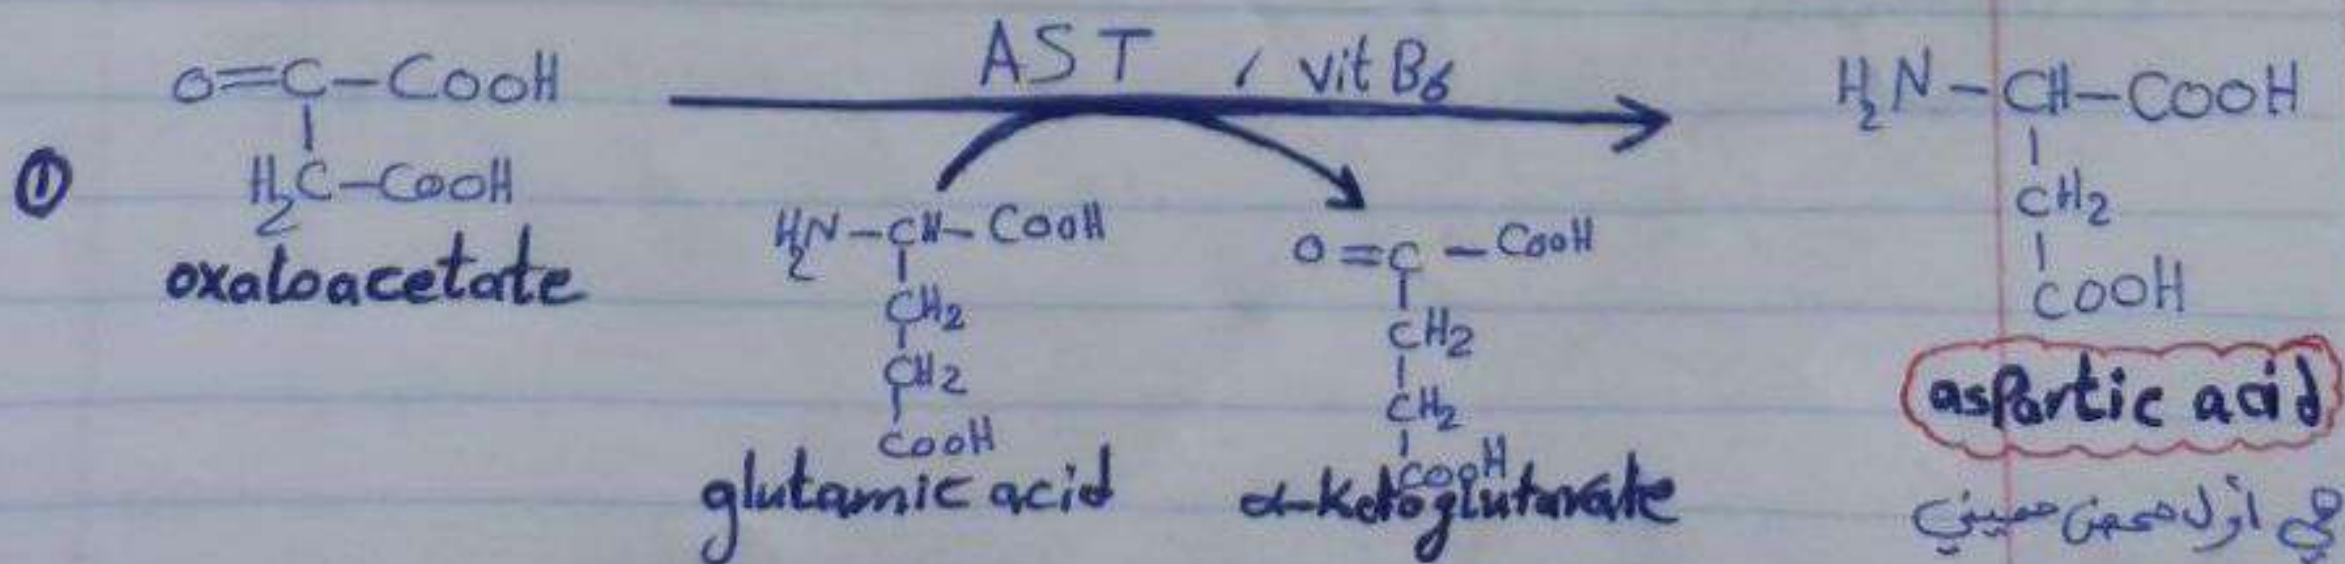 ①
O=C-COOH
H₂C-COOH
oxaloacetate
AST / vit B₆
H₂N-CH-COOH
CH₂
CH₂
COOH
glutamic acid
O=C-COOH
CH₂
CH₂
COOH
α-Ketoglutarate
H₂N-CH-COOH
CH₂
COOH
aspartic acid
أول حمض أميني